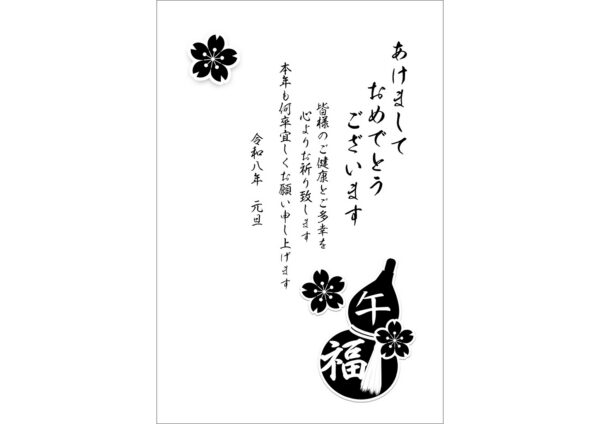 あけまして
おめでとう
ございます
皆様のご健康とご多幸を
心よりお祈り致します
本年も何卒宜しくお願い申し上げます
令和八年 元旦
午
福